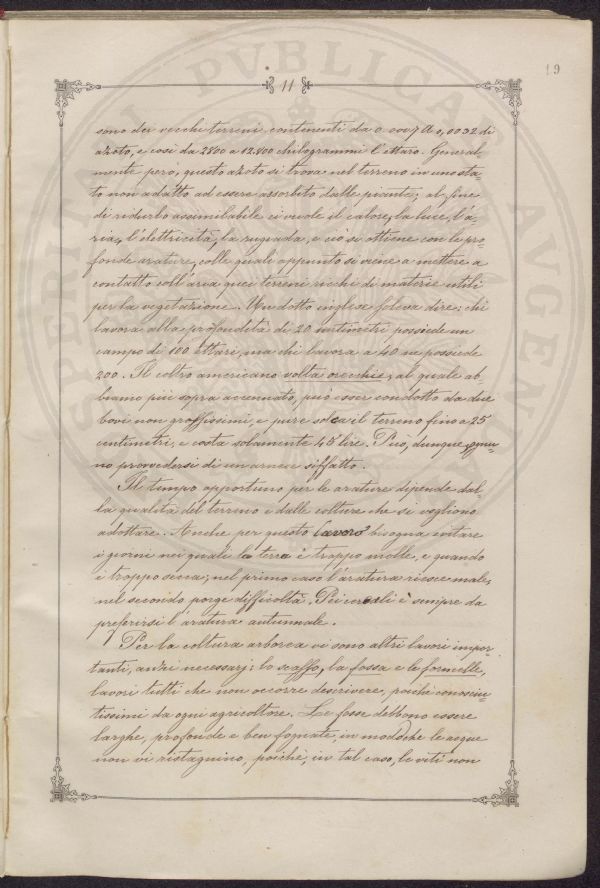 19
11
sono dei vecchi terreni contenenti da 0.0007 a 0,0032 di
azoto, e così da 2800 a 12.800 chilogrammi l'ettaro. General-
mente però, questo azoto si trova nel terreno in uno sta-
to non adatto ad essere assorbito dalle piante; al fine
di ridurlo assimilabile ci vuole il calore, la luce, l'a-
ria, l'elettricità, la rugiada, e ciò si ottiene con le pro-
fonde arature, colle quali appunto si viene a mettere a
contatto coll'aria quei terreni ricchi di materie utili
per la vegetazione. Un dotto inglese soleva dire: chi
lavora alla profondità di 20 centimetri possiede un
campo di 100 ettari, ma chi lavora a 40 ne possiede
200. Il coltro americano volta orecchie, al quale ab-
biamo più sopra accennato, può esser condotto da due
bovi non grossissimi, e pure solca il terreno fino a 25
centimetri, e costa solamente 45 lire. Può, dunque, ognu-
no provvedersi di un arnese siffatto.
Il tempo opportuno per le arature dipende dal-
la qualità del terreno e dalle colture che si vogliono
adottare. Anche per questo lavoro bisogna evitare
i giorni nei quali la terra è troppo molle, e quando
è troppo secca; nel primo caso l'aratura riesce male,
nel secondo porge difficoltà. Pei cereali è sempre da
preferirsi l'aratura autunnale.
Per la coltura arborea vi sono altri lavori impor-
tanti, anzi necessarj: lo scasso, la fossa e le formelle,
lavori tutti che non occorre descrivere, poichè conosciu-
tissimi da ogni agricoltore. Le fosse debbono essere
larghe, profonde e ben fognate, in modochè le acque
non vi ristagnino, poichè, in tal caso, le viti non